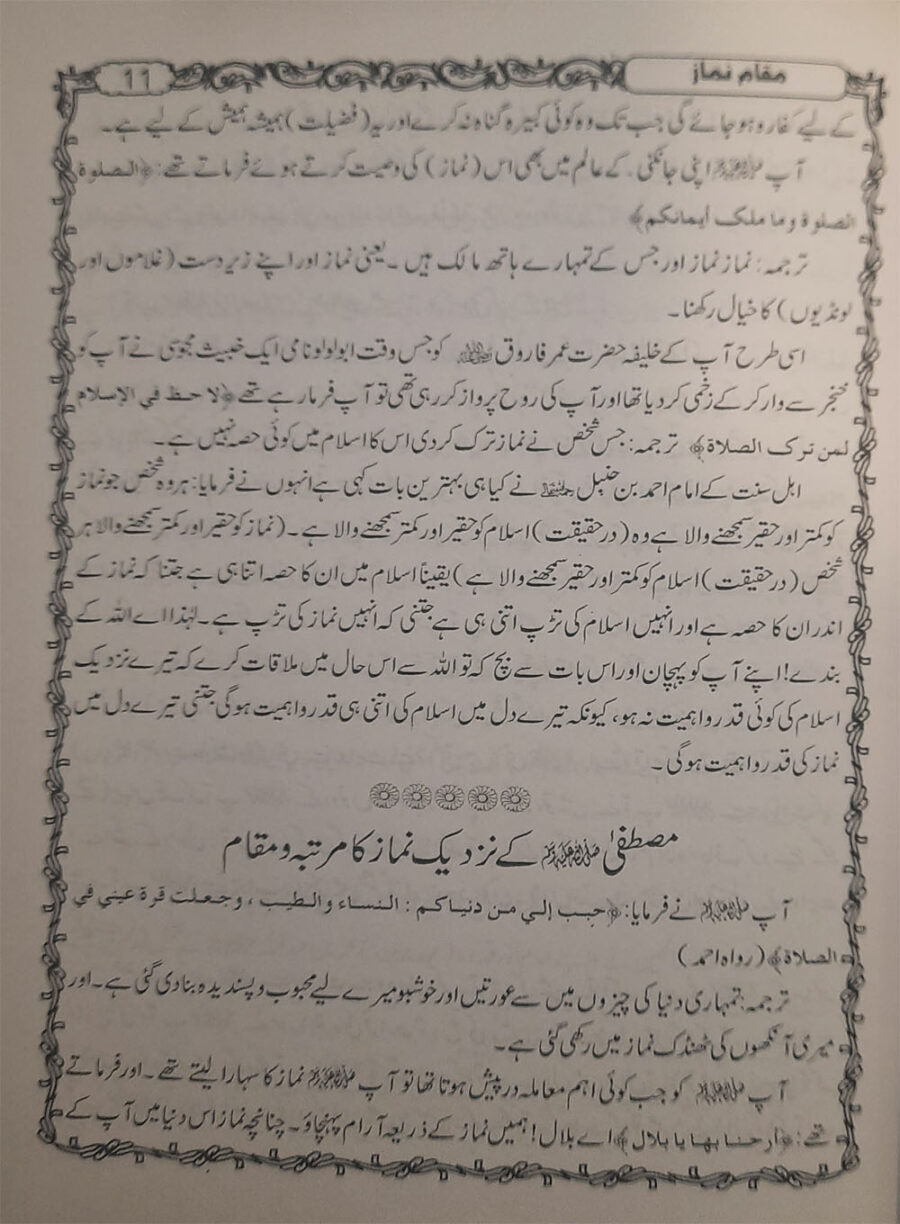 مقام نماز
11
کے لیے کفارہ ہو جائے گی جب تک وہ کوئی کبیرہ گناہ نہ کرے اور یہ (فضیلت) ہمیشہ ہمیش کے لیے ہے۔
آپ ﷺ اپنی جانکنی کے عالم میں بھی اس (نماز) کی وصیت کرتے ہوئے فرماتے تھے: ﴿الصلوة
الصلوة وما ملکت أیمانکم﴾
ترجمہ: نماز نماز اور جس کے تمہارے ہاتھ مالک ہیں۔ یعنی نماز اور اپنے زیر دست (غلاموں اور
لونڈیوں) کا خیال رکھنا۔
اسی طرح آپ کے خلیفہ حضرت عمر فاروق رضی اللہ عنہ کو جس وقت ابولولو نامی ایک خبیث مجوسی نے آپ کو
خنجر سے وار کر کے زخمی کر دیا تھا اور آپ کی روح پرواز کر رہی تھی تو آپ فرما رہے تھے ﴿لا حظ في الإسلام
لمن ترک الصلاة﴾ ترجمہ: جس شخص نے نماز ترک کر دی اس کا اسلام میں کوئی حصہ نہیں ہے۔
اہل سنت کے امام احمد بن حنبل رحمہ اللہ نے کیا ہی بہترین بات کہی ہے انہوں نے فرمایا: ہر وہ شخص جو نماز
کو کمتر اور حقیر سمجھنے والا ہے وہ (درحقیقت) اسلام کو حقیر اور کمتر سمجھنے والا ہے۔ (نماز کو حقیر اور کمتر سمجھنے والا ہر
شخص (درحقیقت) اسلام کو کمتر اور حقیر سمجھنے والا ہے) یقیناً اسلام میں ان کا حصہ اتنا ہی ہے جتنا کہ نماز کے
اندر ان کا حصہ ہے اور انہیں اسلام کی تڑپ اتنی ہی ہے جتنی کہ انہیں نماز کی تڑپ ہے۔ لہٰذا اے اللہ کے
بندے! اپنے آپ کو پہچان اور اس بات سے بچ کہ تو اللہ سے اس حال میں ملاقات کرے کہ تیرے نزدیک
اسلام کی کوئی قدر و اہمیت نہ ہو، کیونکہ تیرے دل میں اسلام کی اتنی ہی قدر و اہمیت ہوگی جتنی تیرے دل میں
نماز کی قدر و اہمیت ہوگی۔
مصطفیٰ ﷺ کے نزدیک نماز کا مرتبہ و مقام
آپ ﷺ نے فرمایا: ﴿حبب إلي من دنیاکم : النساء والطیب ، وجعلت قرة عیني في
الصلاة﴾ (رواہ احمد)
ترجمہ: تمہاری دنیا کی چیزوں میں سے عورتیں اور خوشبو میرے لیے محبوب و پسندیدہ بنا دی گئی ہے۔ اور
میری آنکھوں کی ٹھنڈک نماز میں رکھی گئی ہے۔
آپ ﷺ کو جب کوئی اہم معاملہ درپیش ہوتا تھا تو آپ ﷺ نماز کا سہارا لیتے تھے۔ اور فرماتے
تھے: ﴿أرحنا بها یا بلال﴾ اے بلال! ہمیں نماز کے ذریعہ آرام پہنچاؤ۔ چنانچہ نماز اس دنیا میں آپ کے